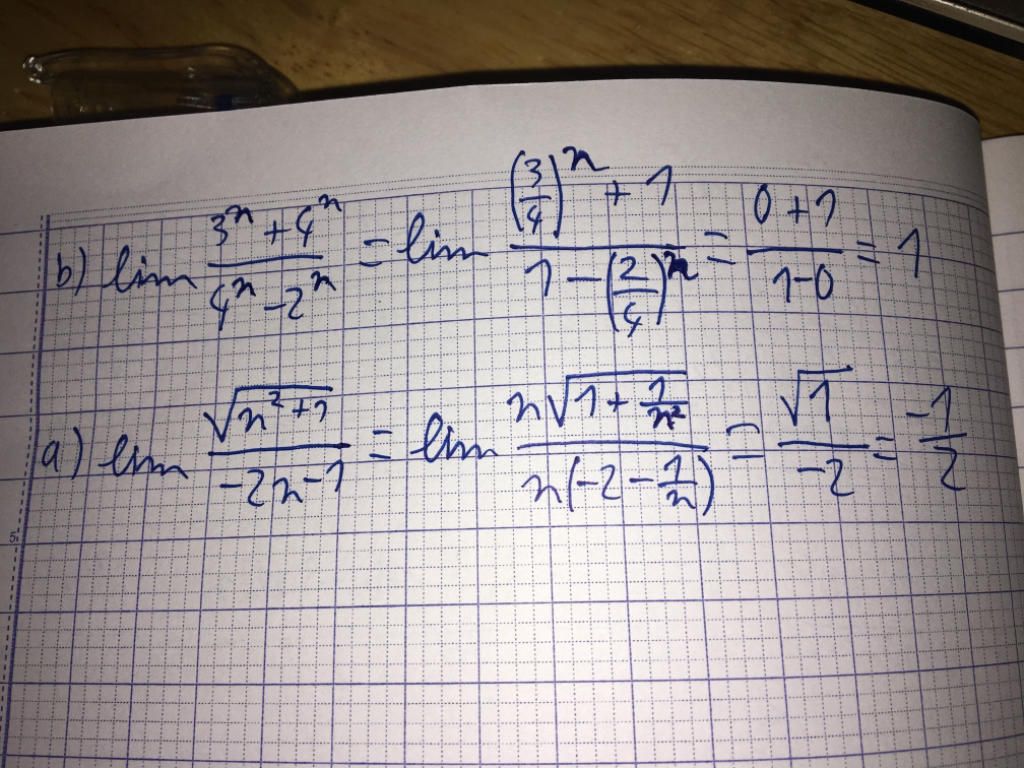 b) lim (3^n + 4^n)/(4^n - 2^n) = lim ((3/4)^n + 1)/(1 - (2/4)^n) = (0 + 1)/(1 - 0) = 1
a) lim √(n² + 1)/(-2n - 1) = lim n√(1 + 1/n²)/n(-2 - 1/n) = √1/-2 = -1/2
5